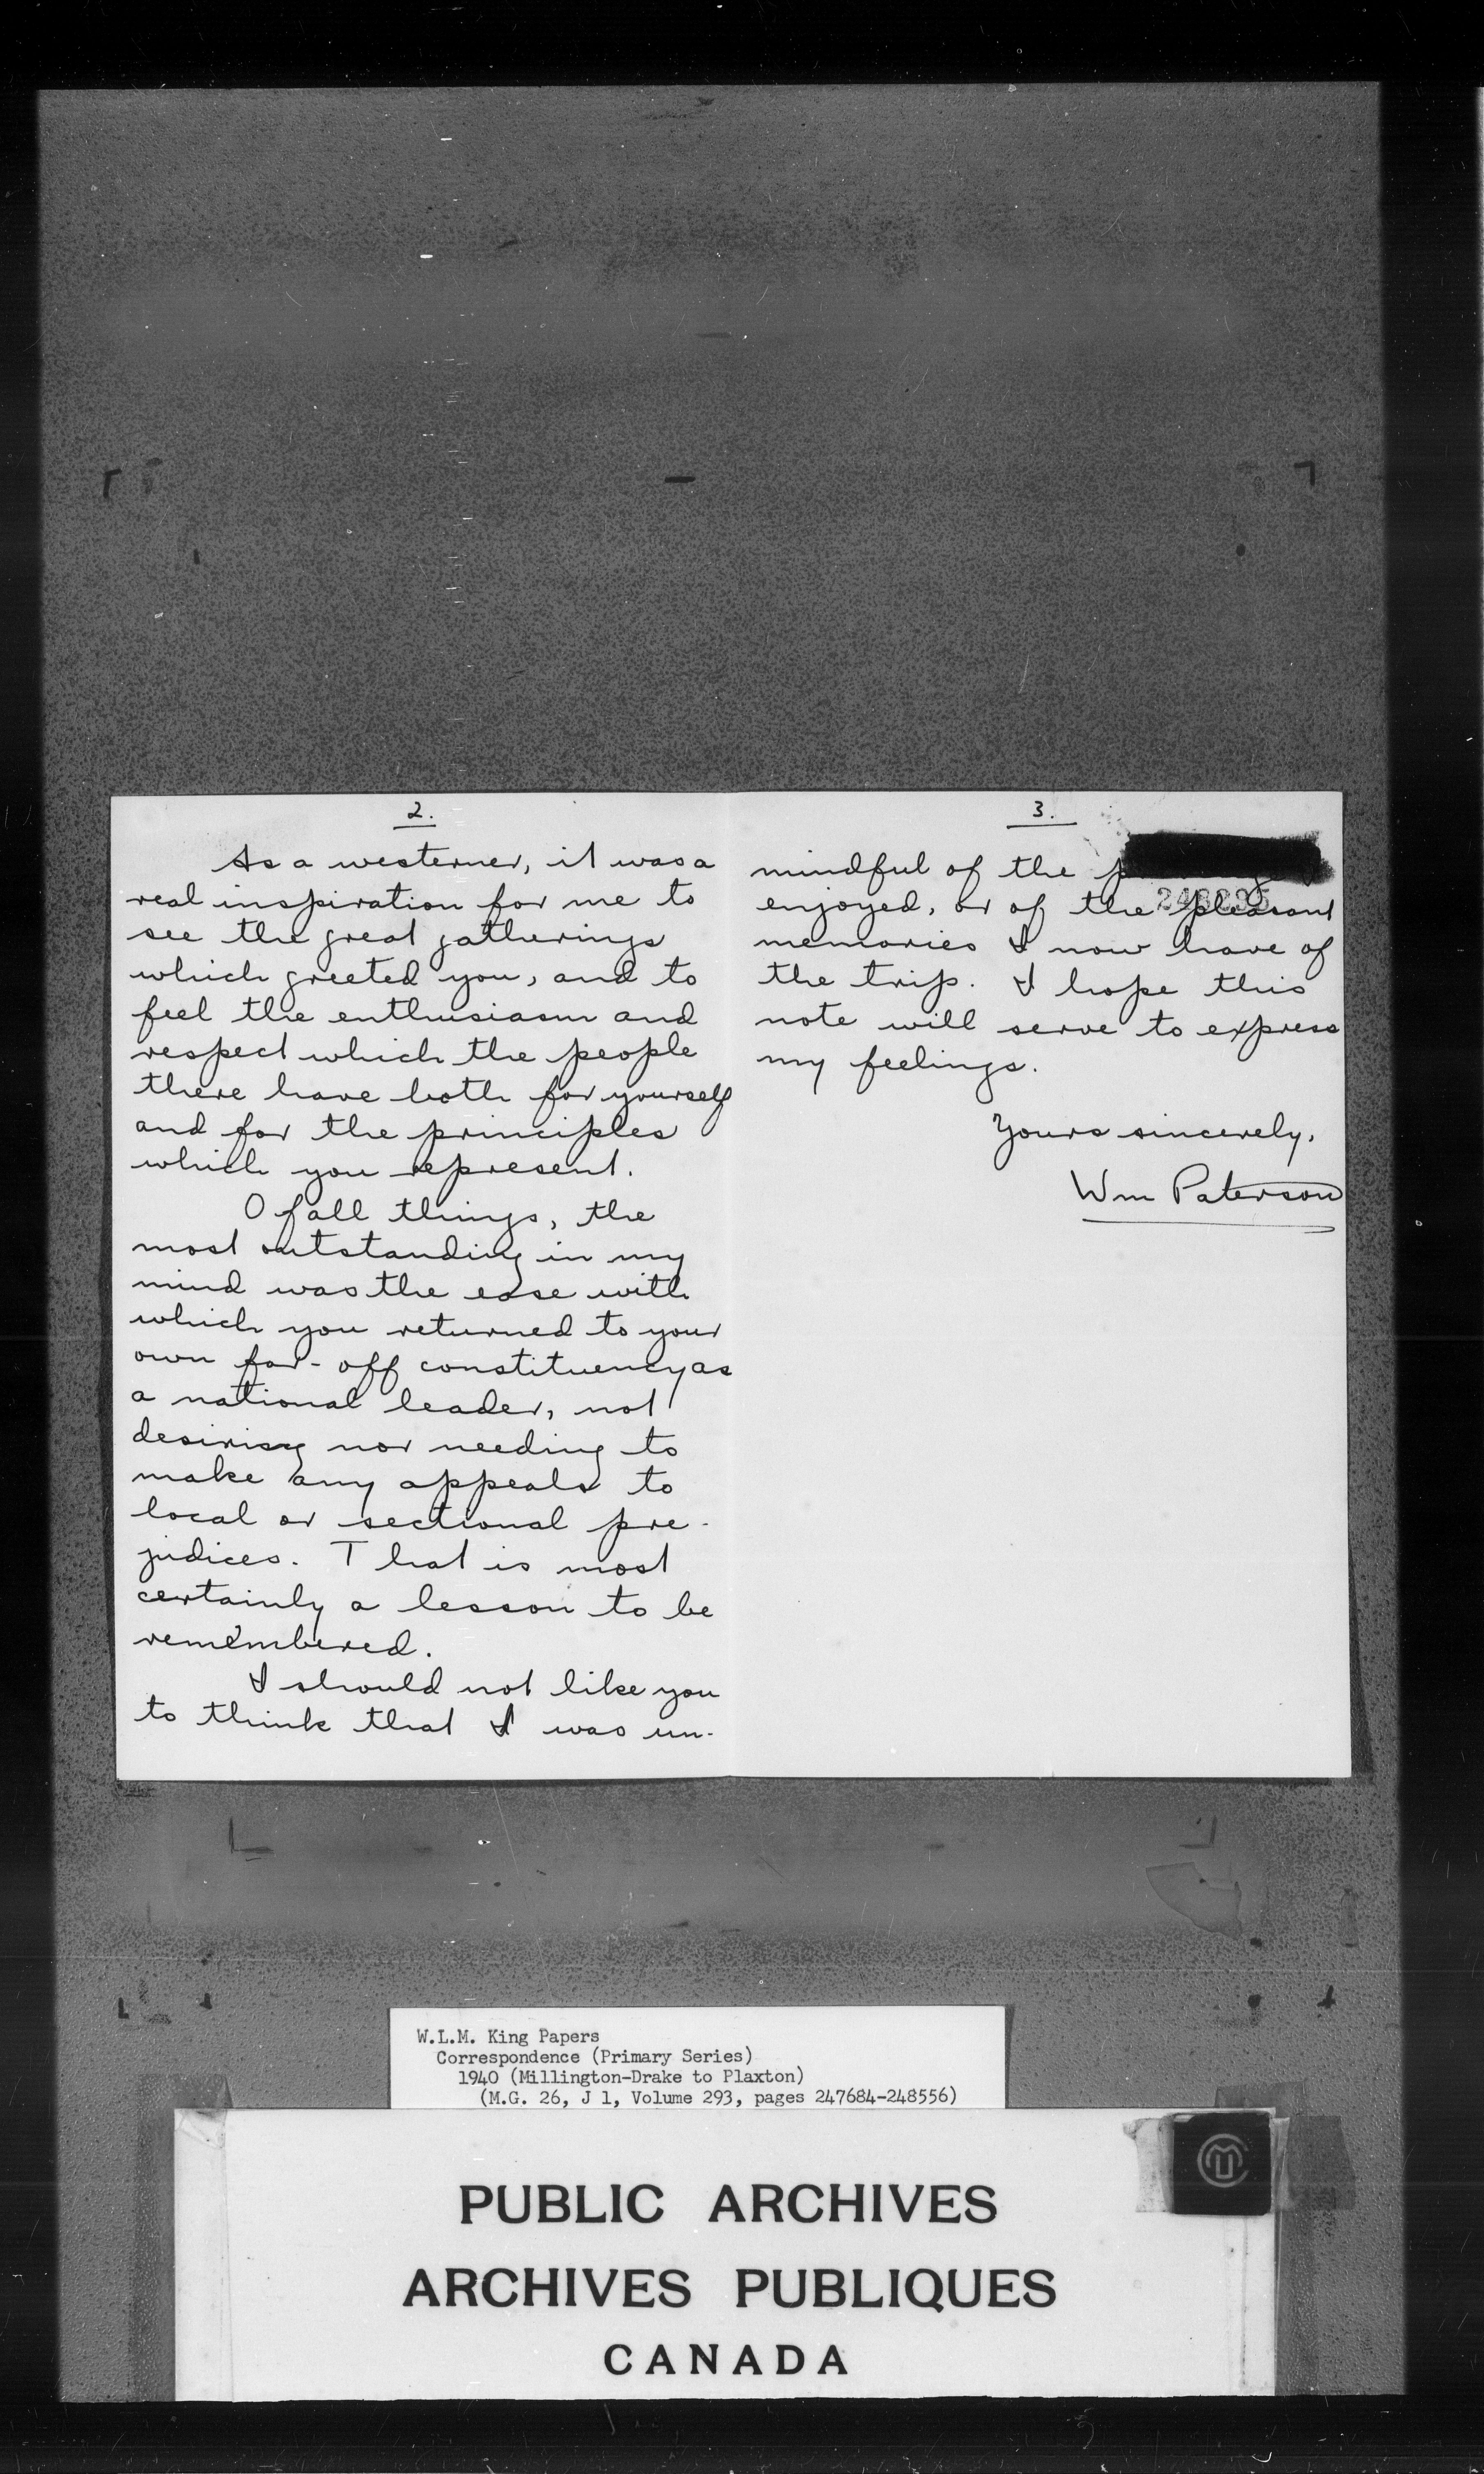 2.
As a westerner, it was a
real inspiration for me to
see the great gatherings
which greeted you, and to
feel the enthusiasm and
respect which the people
there have both for yourself
and for the principles
which you represent.
Of all things, the
most outstanding in my
mind was the ease with
which you returned to your
own far-off constituency as
a national leader, not
desiring nor needing to
make any appeals to
local or sectional pre-
judices. That is most
certainly a lesson to be
remembered.
I should not like you
to think that I was un-
3.
mindful of the
enjoyed, or of the pleasant
memories I now have of
the trip. I hope this
note will serve to express
my feelings.
Yours sincerely,
Wm Paterson
W.L.M. King Papers
Correspondence (Primary Series)
1940 (Millington-Drake to Plaxton)
(M.G. 26, J 1, Volume 293, pages 247684-248556)
PUBLIC ARCHIVES
ARCHIVES PUBLIQUES
CANADA